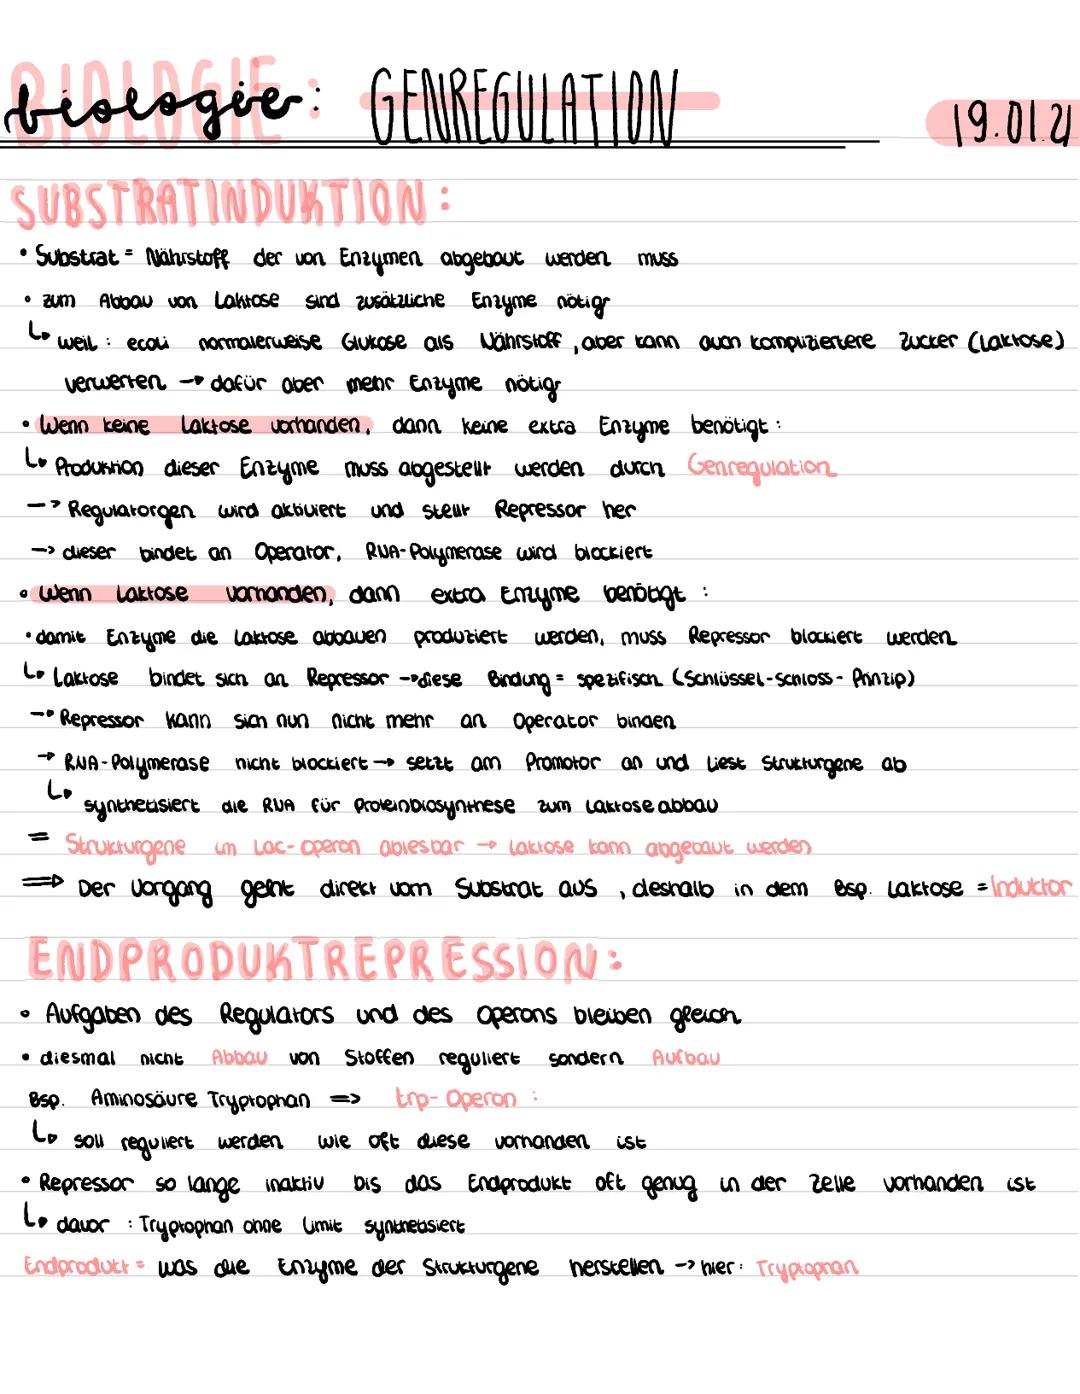 biologie: GENREGULATION
19.01.21
SUBSTRATINDUKTION:
• Substrat = Nährstoff der von Enzymen abgebaut werden muss
• zum Abbau von Laktose sind zusätzliche Enzyme nötig
↳ weil: ecoli normalerweise Glukose als Nährstoff, aber kann auch kompliziertere Zucker (Laktose)
verwerten → dafür aber mehr Enzyme nötig
• Wenn keine Laktose vorhanden, dann keine extra Enzyme benötigt:
↳ Produktion dieser Enzyme muss abgestellt werden durch Genregulation
-> Regulatorgen wird aktiviert und stellt Repressor her
-> dieser bindet an Operator, RNA-Polymerase wird blockiert
• Wenn Laktose vorhanden, dann extra Enzyme benötigt:
• damit Enzyme die Laktose abbauen produziert werden, muss Repressor blockiert werden
↳ Laktose bindet sich an Repressor → diese Bindung = spezifisch (Schlüssel-Schloss-Prinzip)
→ Repressor kann sich nun nicht mehr an Operator binden
→ RNA-Polymerase nicht blockiert → setzt am Promotor an und liest Strukturgene ab
↳ synthetisiert die RNA für Proteinbiosynthese zum Laktoseabbau
= Strukturgene im Lac-Operon ablesbar → Laktose kann abgebaut werden
⇒ Der Vorgang geht direkt vom Substrat aus, deshalb in dem Bsp. Laktose = Induktor
ENDPRODUKTREPRESSION:
• Aufgaben des Regulators und des Operons bleiben gleich
• diesmal nicht Abbau von Stoffen reguliert sondern Aufbau
Bsp. Aminosäure Tryptophan => trp-Operon:
↳ soll reguliert werden wie oft diese vorhanden ist
• Repressor so lange inaktiv bis das Endprodukt oft genug in der Zelle vorhanden ist
↳ davor: Tryptophan ohne Limit synthetisiert
Endprodukt = was die Enzyme der Strukturgene herstellen -> hier: Tryptophan